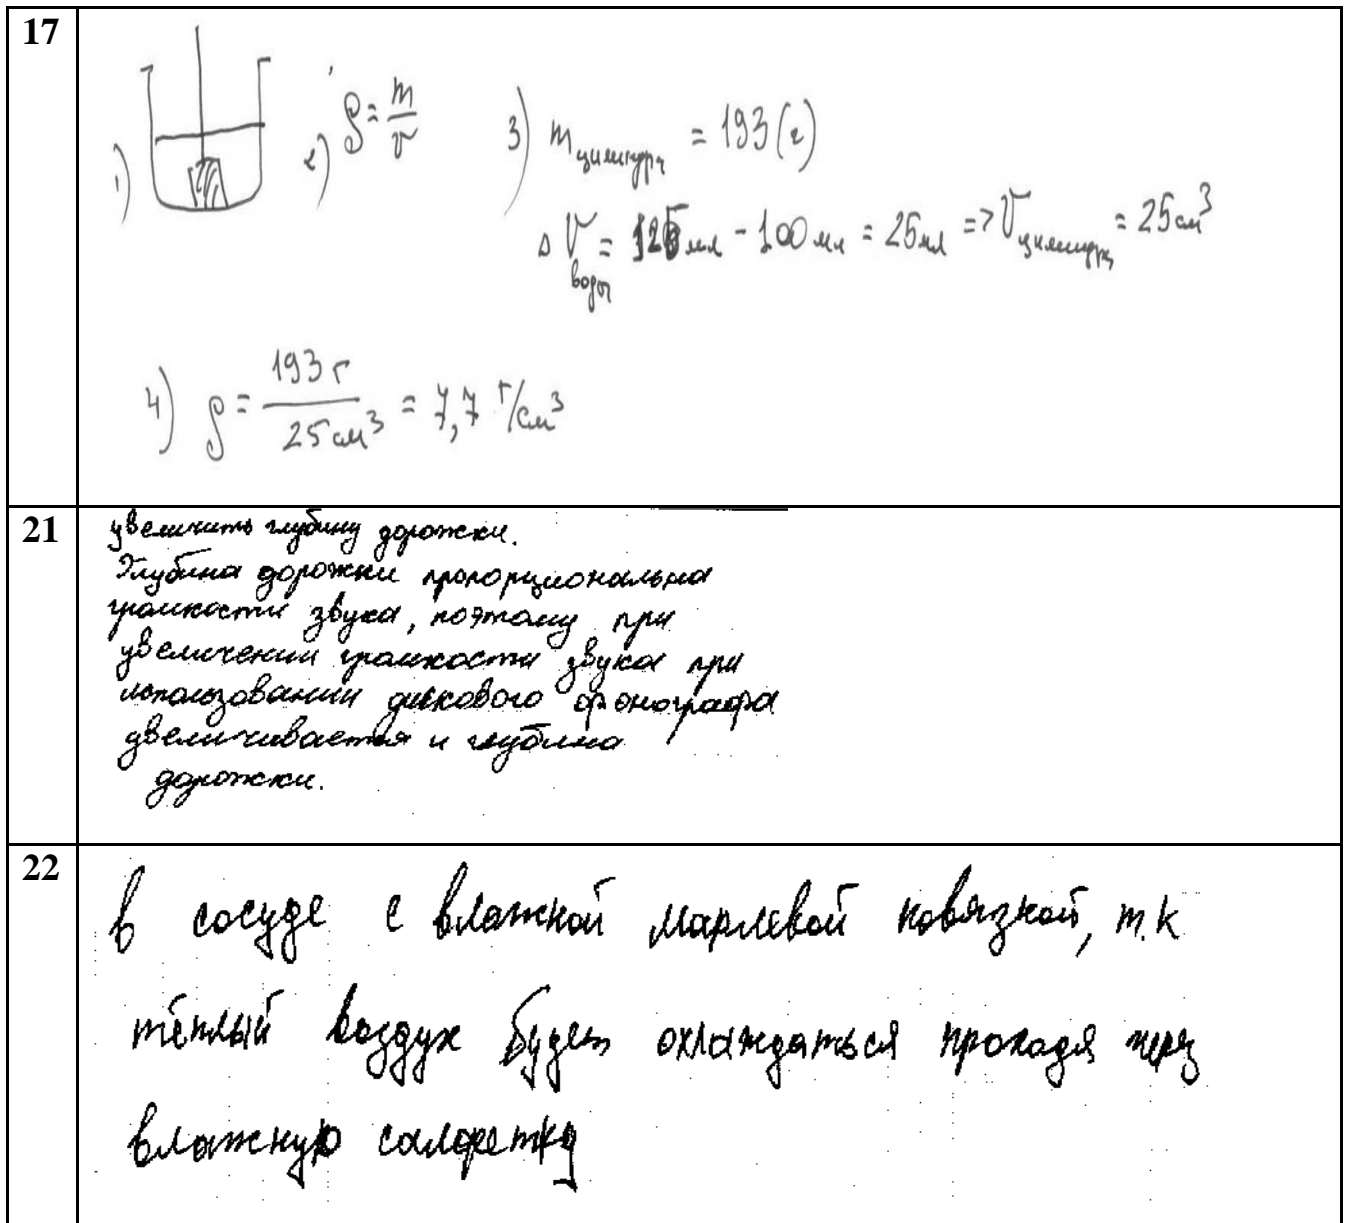 17
1)
2) ρ = m/V
3) m цилиндра = 193 (г)
Δ V воды = 125 мл - 100 мл = 25 мл => V цилиндра = 25 см³
4) ρ = 193 г / 25 см³ = 7,7 г/см³
21
увеличить глубину дорожки.
Глубина дорожки пропорциональна
громкости звука, поэтому при
увеличении громкости звука при
использовании дискового фонографа
увеличивается и глубина
дорожки.
22
в сосуде с влажной марлевой повязкой, т.к
тёплый воздух будет охлаждаться проходя через
влажную салфетку